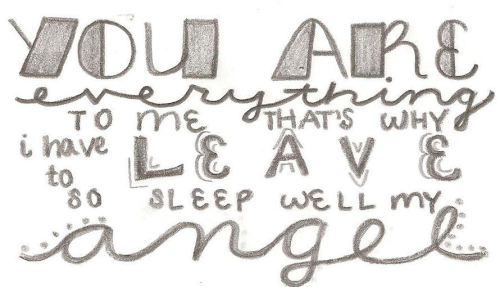 YOU ARE
everything
TO ME THAT'S WHY
i have to LEAVE
SO SLEEP WELL MY
angel